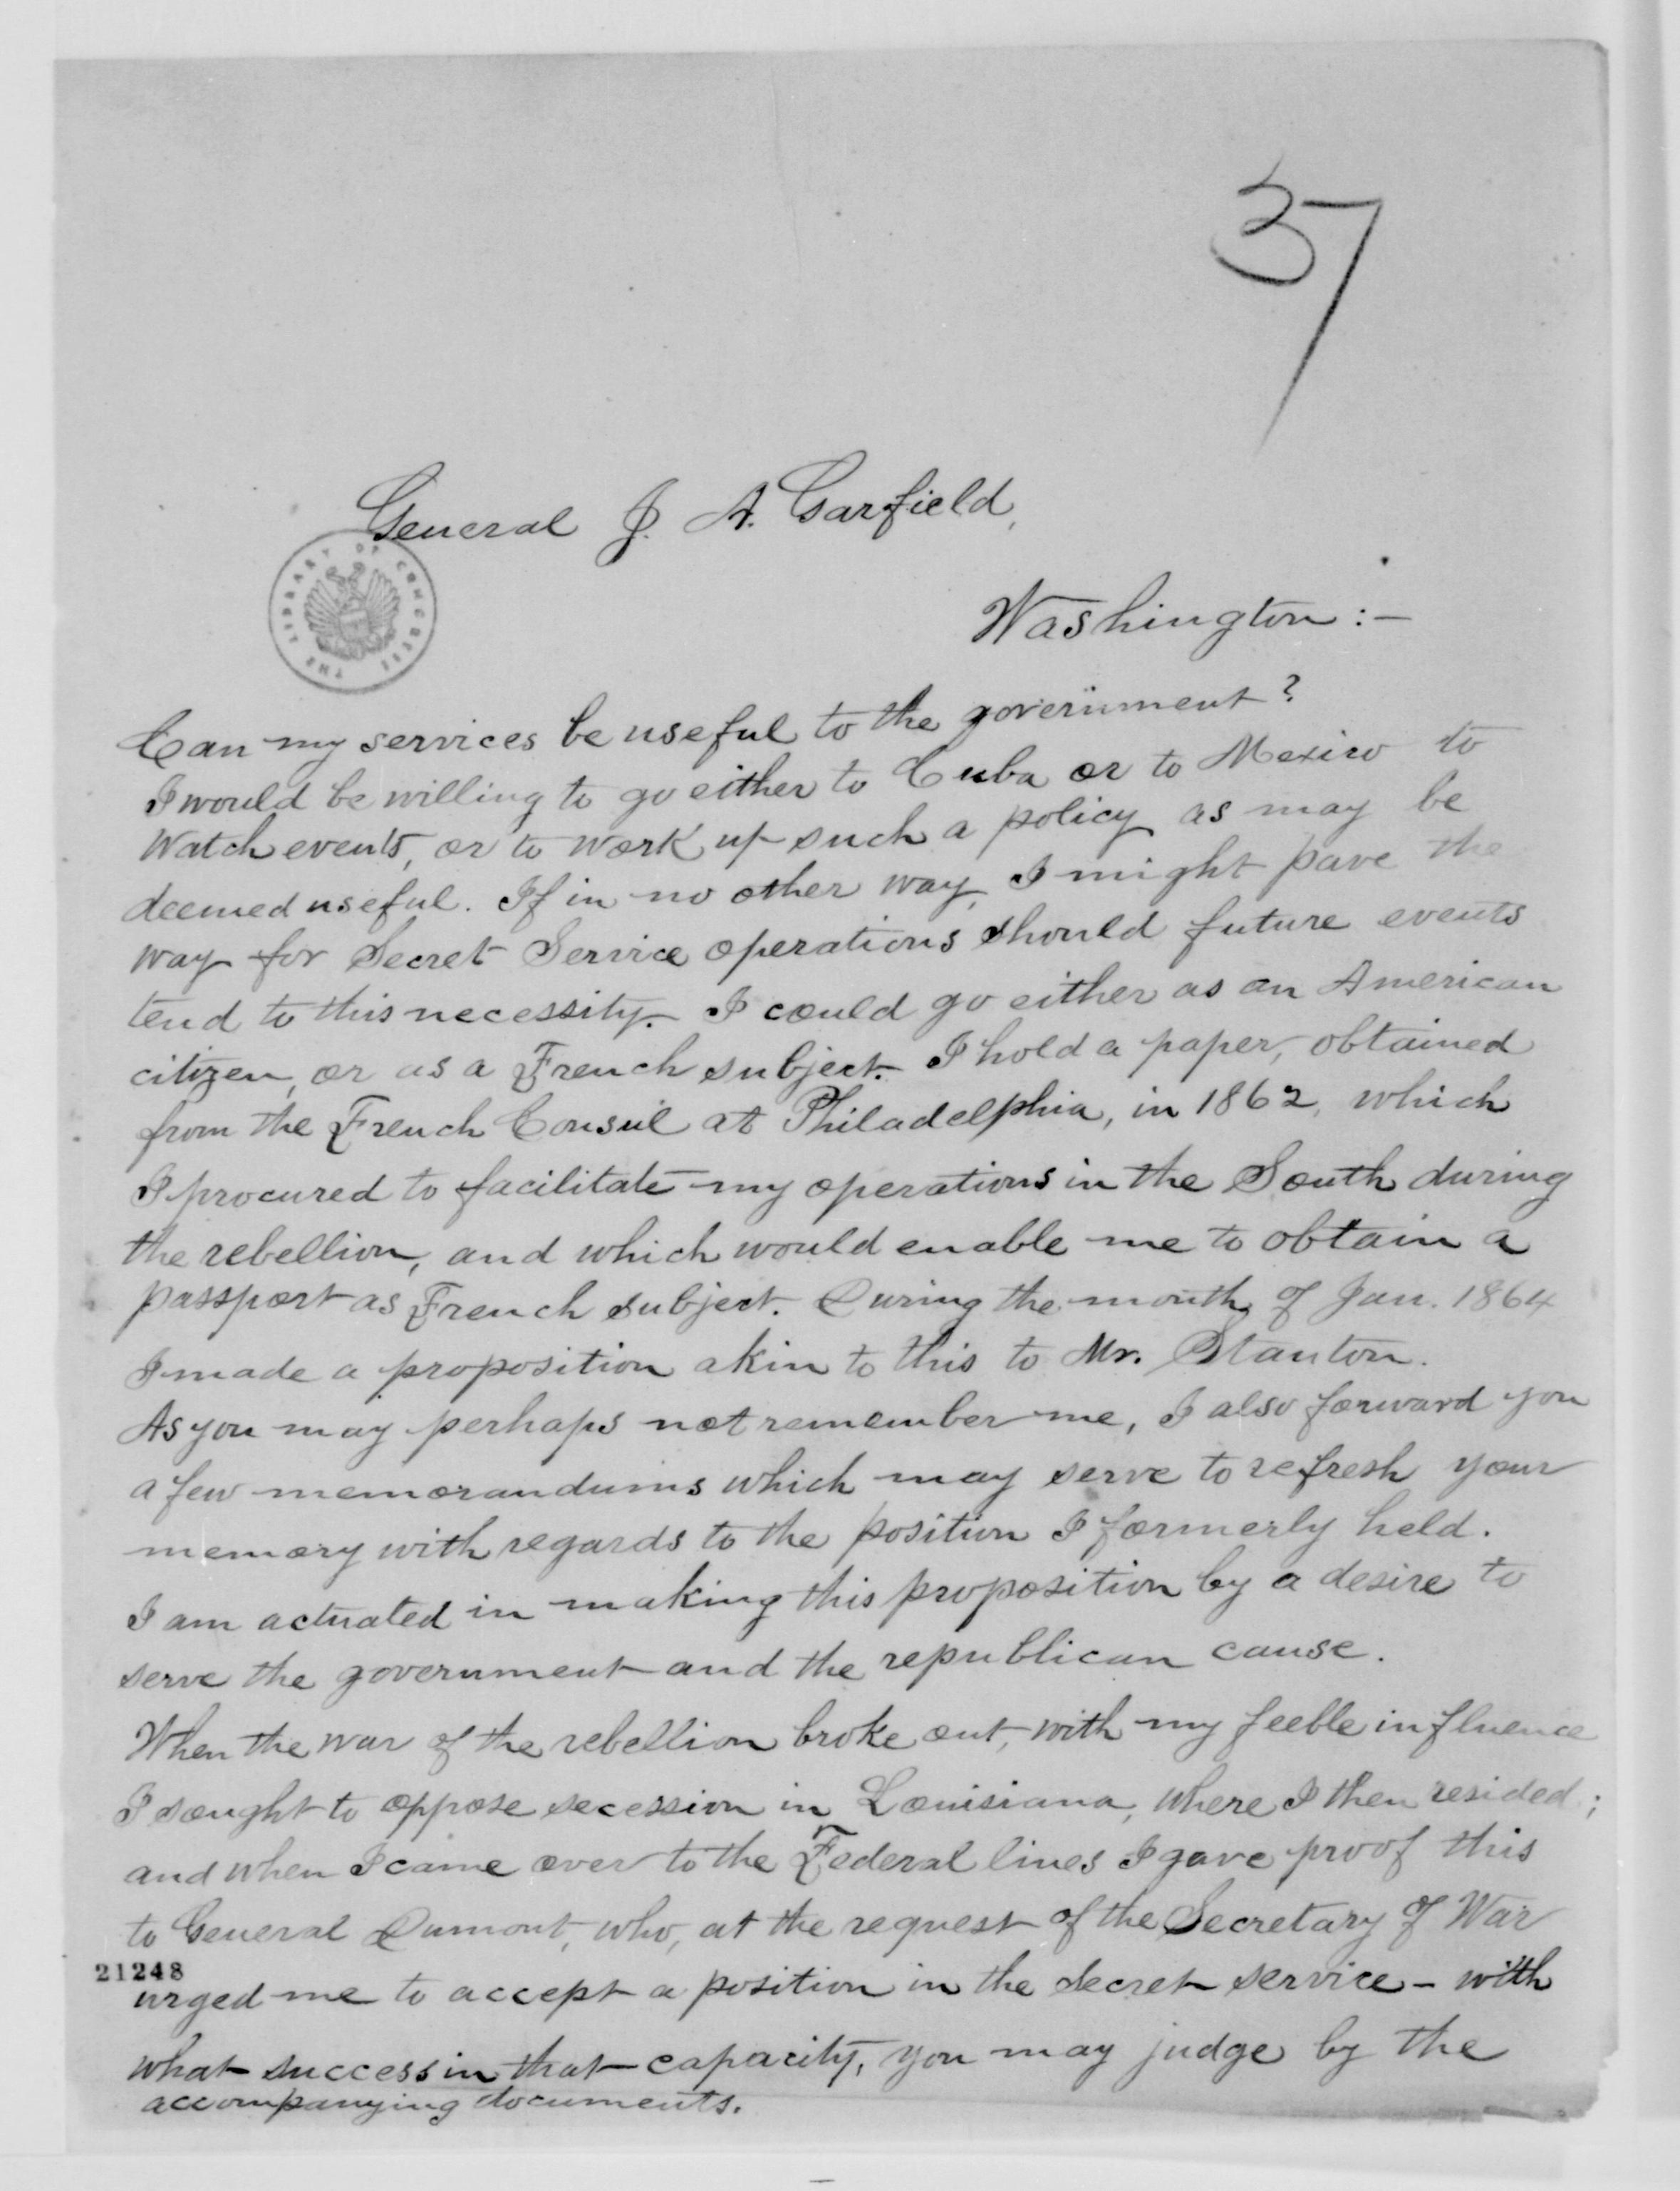 37
General J. A. Garfield,
THE LIBRARY OF CONGRESS
Washington :-
Can my services be useful to the government?
I would be willing to go either to Cuba or to Mexico to
watch events, or to work up such a policy as may be
deemed useful. If in no other way, I might pave the
way for Secret Service operations should future events
tend to this necessity. I could go either as an American
citizen, or as a French subject. I hold a paper, obtained
from the French Consul at Philadelphia, in 1862, which
I procured to facilitate my operations in the South during
the rebellion, and which would enable me to obtain a
passport as French subject. During the month of Jan. 1864
I made a proposition akin to this to Mr. Stanton.
As you may perhaps not remember me, I also forward you
a few memorandums which may serve to refresh your
memory with regards to the position I formerly held.
I am actuated in making this proposition by a desire to
serve the government and the republican cause.
When the war of the rebellion broke out, with my feeble influence
I sought to oppose secession in Louisiana, where I then resided;
and when I came over to the Federal lines I gave proof this
to General Dumont, who, at the request of the Secretary of War
21248
urged me to accept a position in the secret service - with
what success in that capacity, you may judge by the
accompanying documents.